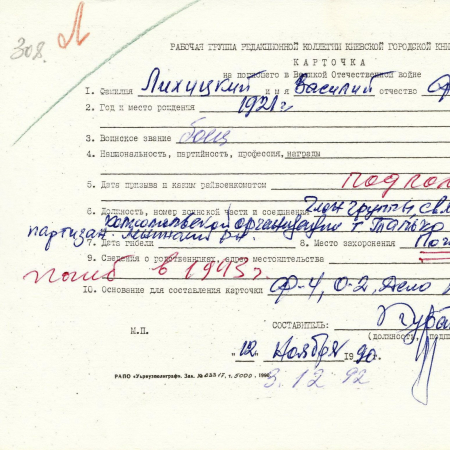 308. Л
РАБОЧАЯ ГРУППА РЕДАКЦИОННОЙ КОЛЛЕГИИ КИЕВСКОЙ ГОРОДСКОЙ КНИ
КАРТОЧКА
на погибшего в Великой Отечественной войне
1. Фамилия Лихицкий имя Василий отчество
2. Год и место рождения 1921 г
3. Воинское звание боец
4. Национальность, партийность, профессия, награды
5. Дата призыва и каким райвоенкоматом подпол
6. Должность, номер воинской части и соединения член группы
комсомольской организации т.
партизан.
7. Дата гибели 8. Место захоронения
9. Сведения о родственниках, адрес местожительства
погиб в 1943 г.
10. Основание для составления карточки ф-4, О-2, Дело
СОСТАВИТЕЛЬ:
М.П. (должность,
"12" ноября 1990.
РАПО «Укрвузполиграф». Зак. т. 5000.
3.12.92